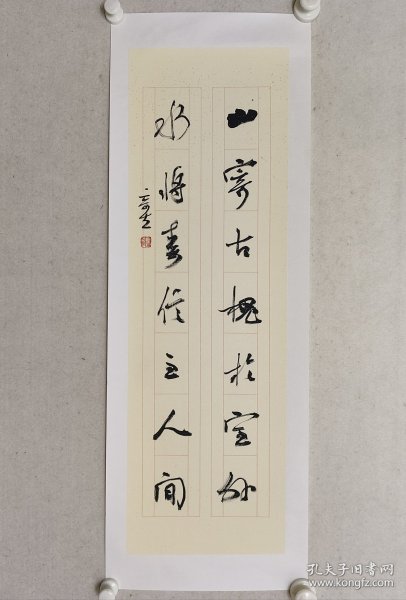 山寄古槐於室外
水將春信至人間
孔夫子旧书网
www.kongfz.com